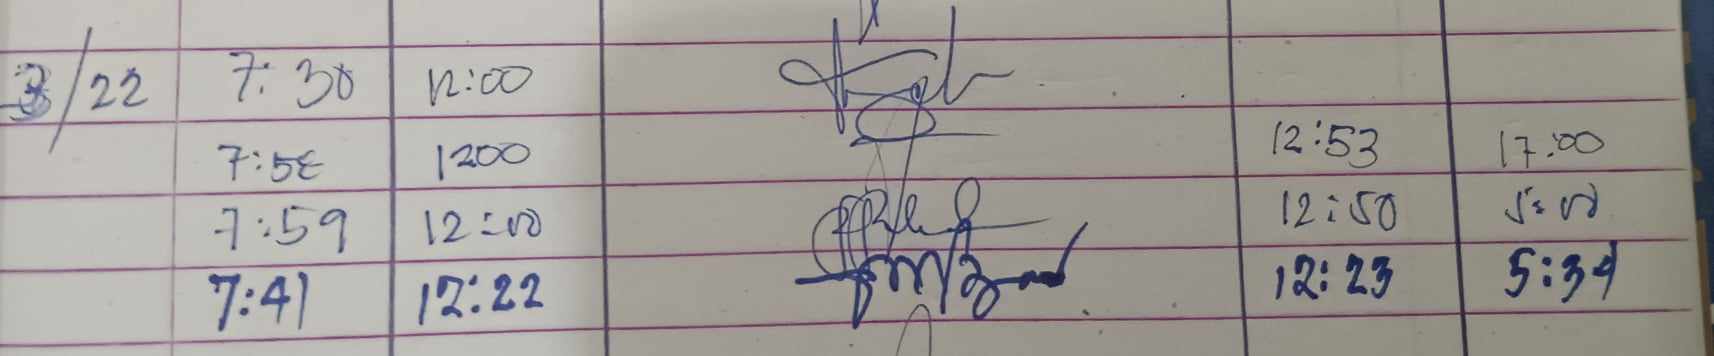 3/22 7:30 12:00
7:58 1200 12:53 17:00
7:59 12:00 12:50 5:00
7:41 12:22 12:23 5:34